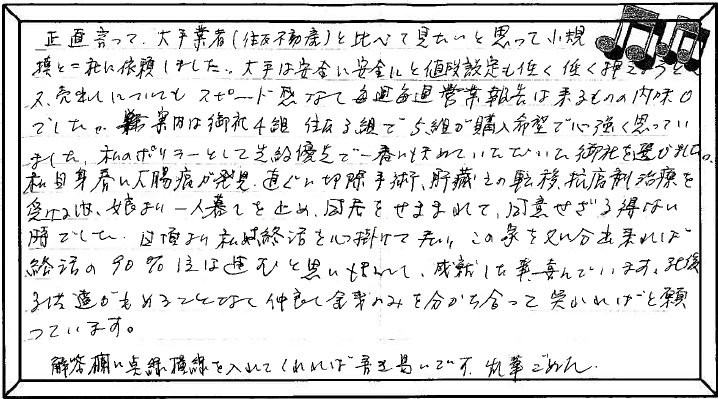 正直言って、大手業者(住友不動産)と比べて見たいと思って小規
模と二社に依頼しました。大手は安全に安全にと値段設定も低く低く押えようと
又、売出しについてもスピード感なく毎週毎週営業報告は来るものの内味0
でした。案内は御社4組 住友3組で5組が購入希望で心強く思ってい
ました。私のポリシーとして先約優先で一番に入れていただいた御社を選びました。
私自身春に大腸癌が発見 直ぐに切除手術、肝臓との転移、抗癌剤治療を
受け、娘より一人暮しを止め、同居をせまられて、同意せざる得ない
時でした。日頃より私は終活を心掛けて居り この家を処分出来れば
終活の90%位は進むと思い、成就した事喜んでいます。死後
子供達がもめることなく仲良く金銭のみを分かち合って笑かればと願
っています。
解答欄に点線横線を入れてくれれば書き易いです。乱筆ごめん。